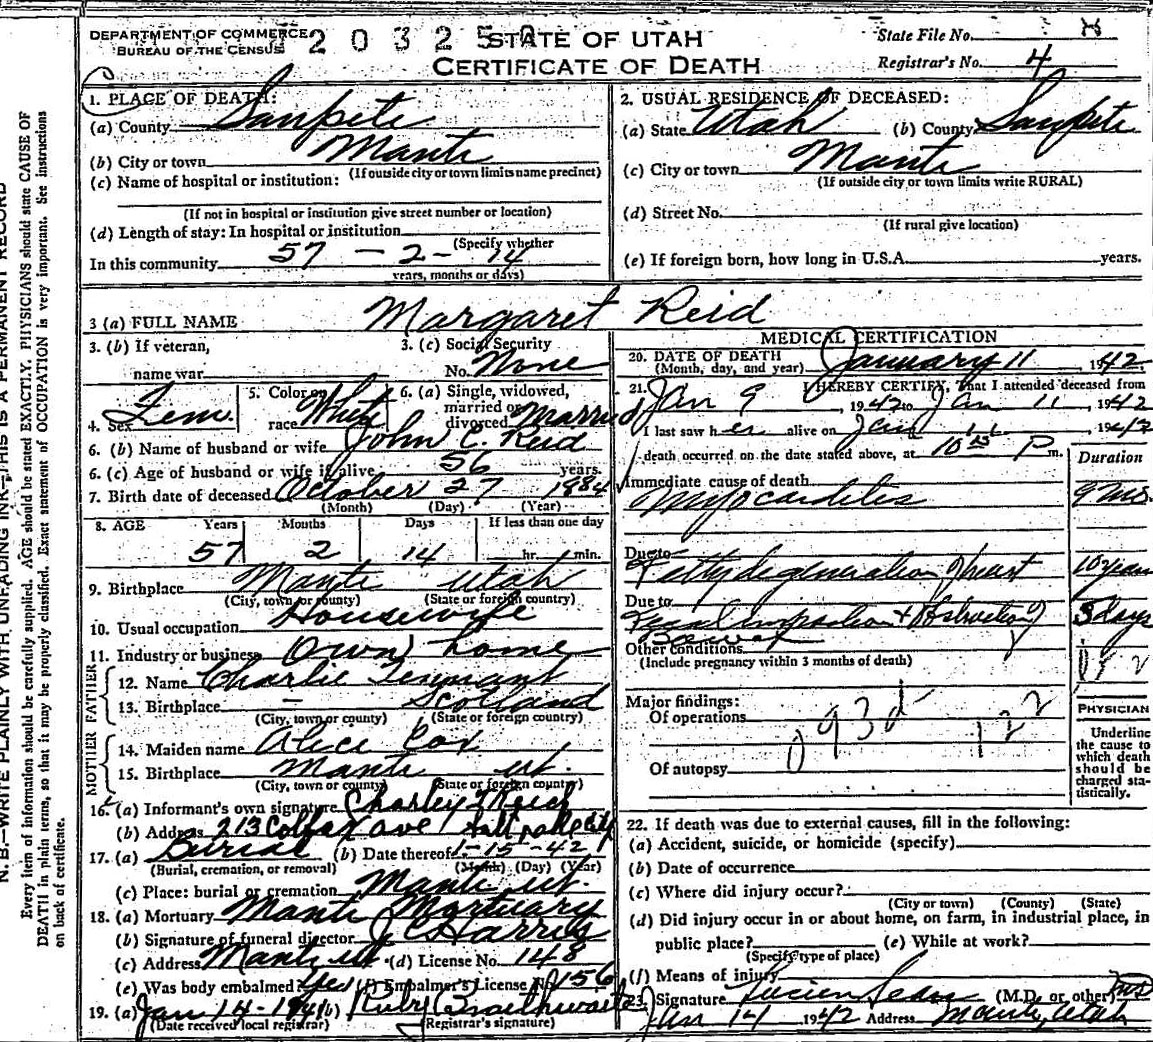 DEPARTMENT OF COMMERCE
BUREAU OF THE CENSUS
2 0 3 2 5
STATE OF UTAH
CERTIFICATE OF DEATH
State File No.
Registrar's No. 4
1. PLACE OF DEATH:
(a) County Sanpete
(b) City or town Manti
(If outside city or town limits name precinct)
(c) Name of hospital or institution:
(If not in hospital or institution give street number or location)
(d) Length of stay: In hospital or institution
(Specify whether
In this community 57 - 2 - 14
years, months or days)
2. USUAL RESIDENCE OF DECEASED:
(a) State Utah (b) County Sanpete
(c) City or town Manti
(If outside city or town limits write RURAL)
(d) Street No.
(If rural give location)
(e) If foreign born, how long in U.S.A. years.
3 (a) FULL NAME Margaret Reid
3. (b) If veteran,
name war
3. (c) Social Security
No. None
4. Sex Fem.
5. Color or
race White
6. (a) Single, widowed,
married or
divorced Married
6. (b) Name of husband or wife John C. Reid
6. (c) Age of husband or wife if alive 56 years.
7. Birth date of deceased October 27 1884
(Month) (Day) (Year)
8. AGE Years Months Days If less than one day
57 2 14 hr. min.
9. Birthplace Manti Utah
(City, town or county) (State or foreign country)
10. Usual occupation Housewife
11. Industry or business Own home
FATHER
12. Name Charlie Tennant
13. Birthplace - Scotland
(City, town or county) (State or foreign country)
MOTHER
14. Maiden name Alice Cox
15. Birthplace Manti ut.
(City, town or county) (State or foreign country)
16. (a) Informant's own signature Charley
(b) Address 213 Colfax ave Salt Lake City
17. (a) Burial (b) Date thereof 1-15-42
(Burial, cremation, or removal) (Month) (Day) (Year)
(c) Place: burial or cremation Manti ut.
18. (a) Mortuary Manti Mortuary
(b) Signature of funeral director J C Harris
(c) Address Manti ut. (d) License No. 148
(e) Was body embalmed? Yes (f) Embalmer's License No. 156
19. (a) Jan 14-1941 (b) Ruby Braithwaite
(Date received local registrar) (Registrar's signature)
MEDICAL CERTIFICATION
20. DATE OF DEATH January 11, 1942.
(Month, day, and year)
21. I HEREBY CERTIFY, That I attended deceased from
Jan 9, 1942 to Jan 11, 1942
I last saw her alive on Jan 11 1942
death occurred on the date stated above, at 10 15 P m.
Duration
Immediate cause of death
Myocarditis
Due to
Fatty degeneration of heart 10 years
Due to
Fecal Impaction + Obstruction of 3 days
Bowel
Other conditions
(Include pregnancy within 3 months of death)
Major findings:
Of operations
93d 122
Of autopsy
PHYSICIAN
Underline
the cause to
which death
should be
charged sta-
tistically.
22. If death was due to external causes, fill in the following:
(a) Accident, suicide, or homicide (specify)
(b) Date of occurrence
(c) Where did injury occur?
(City or town) (County) (State)
(d) Did injury occur in or about home, on farm, in industrial place, in
public place? (e) While at work?
(Specify type of place)
(f) Means of injury
23. Signature Lucien Sears (M.D. or other)
Jan 14 1942 Address Manti, Utah
N. B.—WRITE PLAINLY WITH UNFADING INK—THIS IS A PERMANENT RECORD
Every item of information should be carefully supplied. AGE should be stated EXACTLY. PHYSICIANS should state CAUSE OF
DEATH in plain terms, so that it may be properly classified. Exact statement of OCCUPATION is very important. See instructions
on back of certificate.